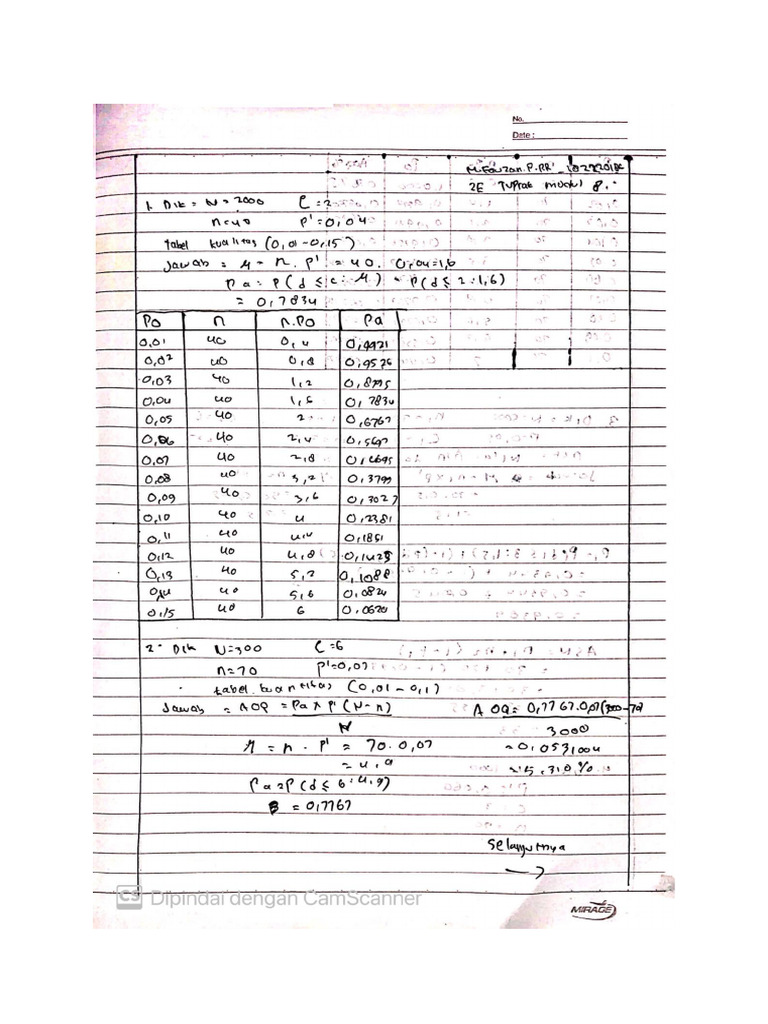 No.
Date :
M. Fauzan. P.
2E Tuprak modul 8.
1. Dik = N = 2000 C = 2
n = 40 P' = 0,04
tabel kualitas (0,01 - 0,15)
Jawab = M = n. P' = 40. 0,04 = 1,6
Pa = P(d ≤ c : M) = P(d ≤ 2 : 1,6)
= 0,7834
Po n n.Po Pa
0,01 40 0,4 0,9921
0,02 40 0,8 0,9526
0,03 40 1,2 0,8795
0,04 40 1,6 0,7834
0,05 40 2 0,6767
0,06 40 2,4 0,5697
0,07 40 2,8 0,4695
0,08 40 3,2 0,3799
0,09 40 3,6 0,3027
0,10 40 4 0,2381
0,11 40 4,4 0,1851
0,12 40 4,8 0,1425
0,13 40 5,2 0,1088
0,14 40 5,6 0,0824
0,15 40 6 0,0620
2. Dik N = 300 C = 6
n = 70 P' = 0,07
tabel kuantitas (0,01 - 0,1)
Jawab = AOQ = Pa x P' (N - n) AOQ = 0,7767.0,07(300-70)
N 3000
M = n . P' = 70. 0,07 = 0,0531004
= 4,9 = 5,310%
Pa = P(d ≤ 6 : 4,9)
= 0,7767
selanjutnya
→
CS Dipindai dengan CamScanner
MIRAGE